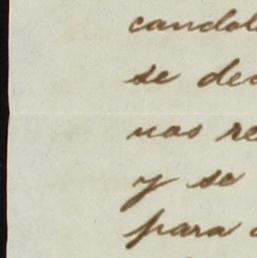 candol
se de
nos re
y se
para